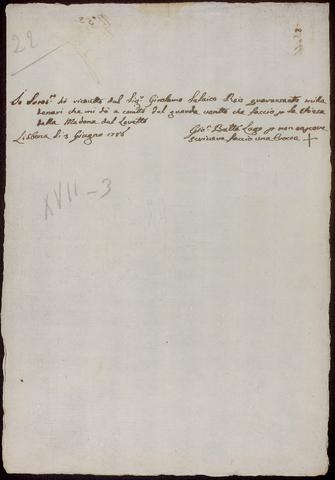 22
Io Sotos.º hò riceutto dal Sig.r Girolamo Salaico Reis quaranta milla
denari che mi dà a conto del guarda vento che faccio p la Chiesa
della Madona dal Loretto
Lisbona li 3 Giugno 1786
Gio. Batta Lago p non sapere
scrivere faccio una Croce +
XVII-3